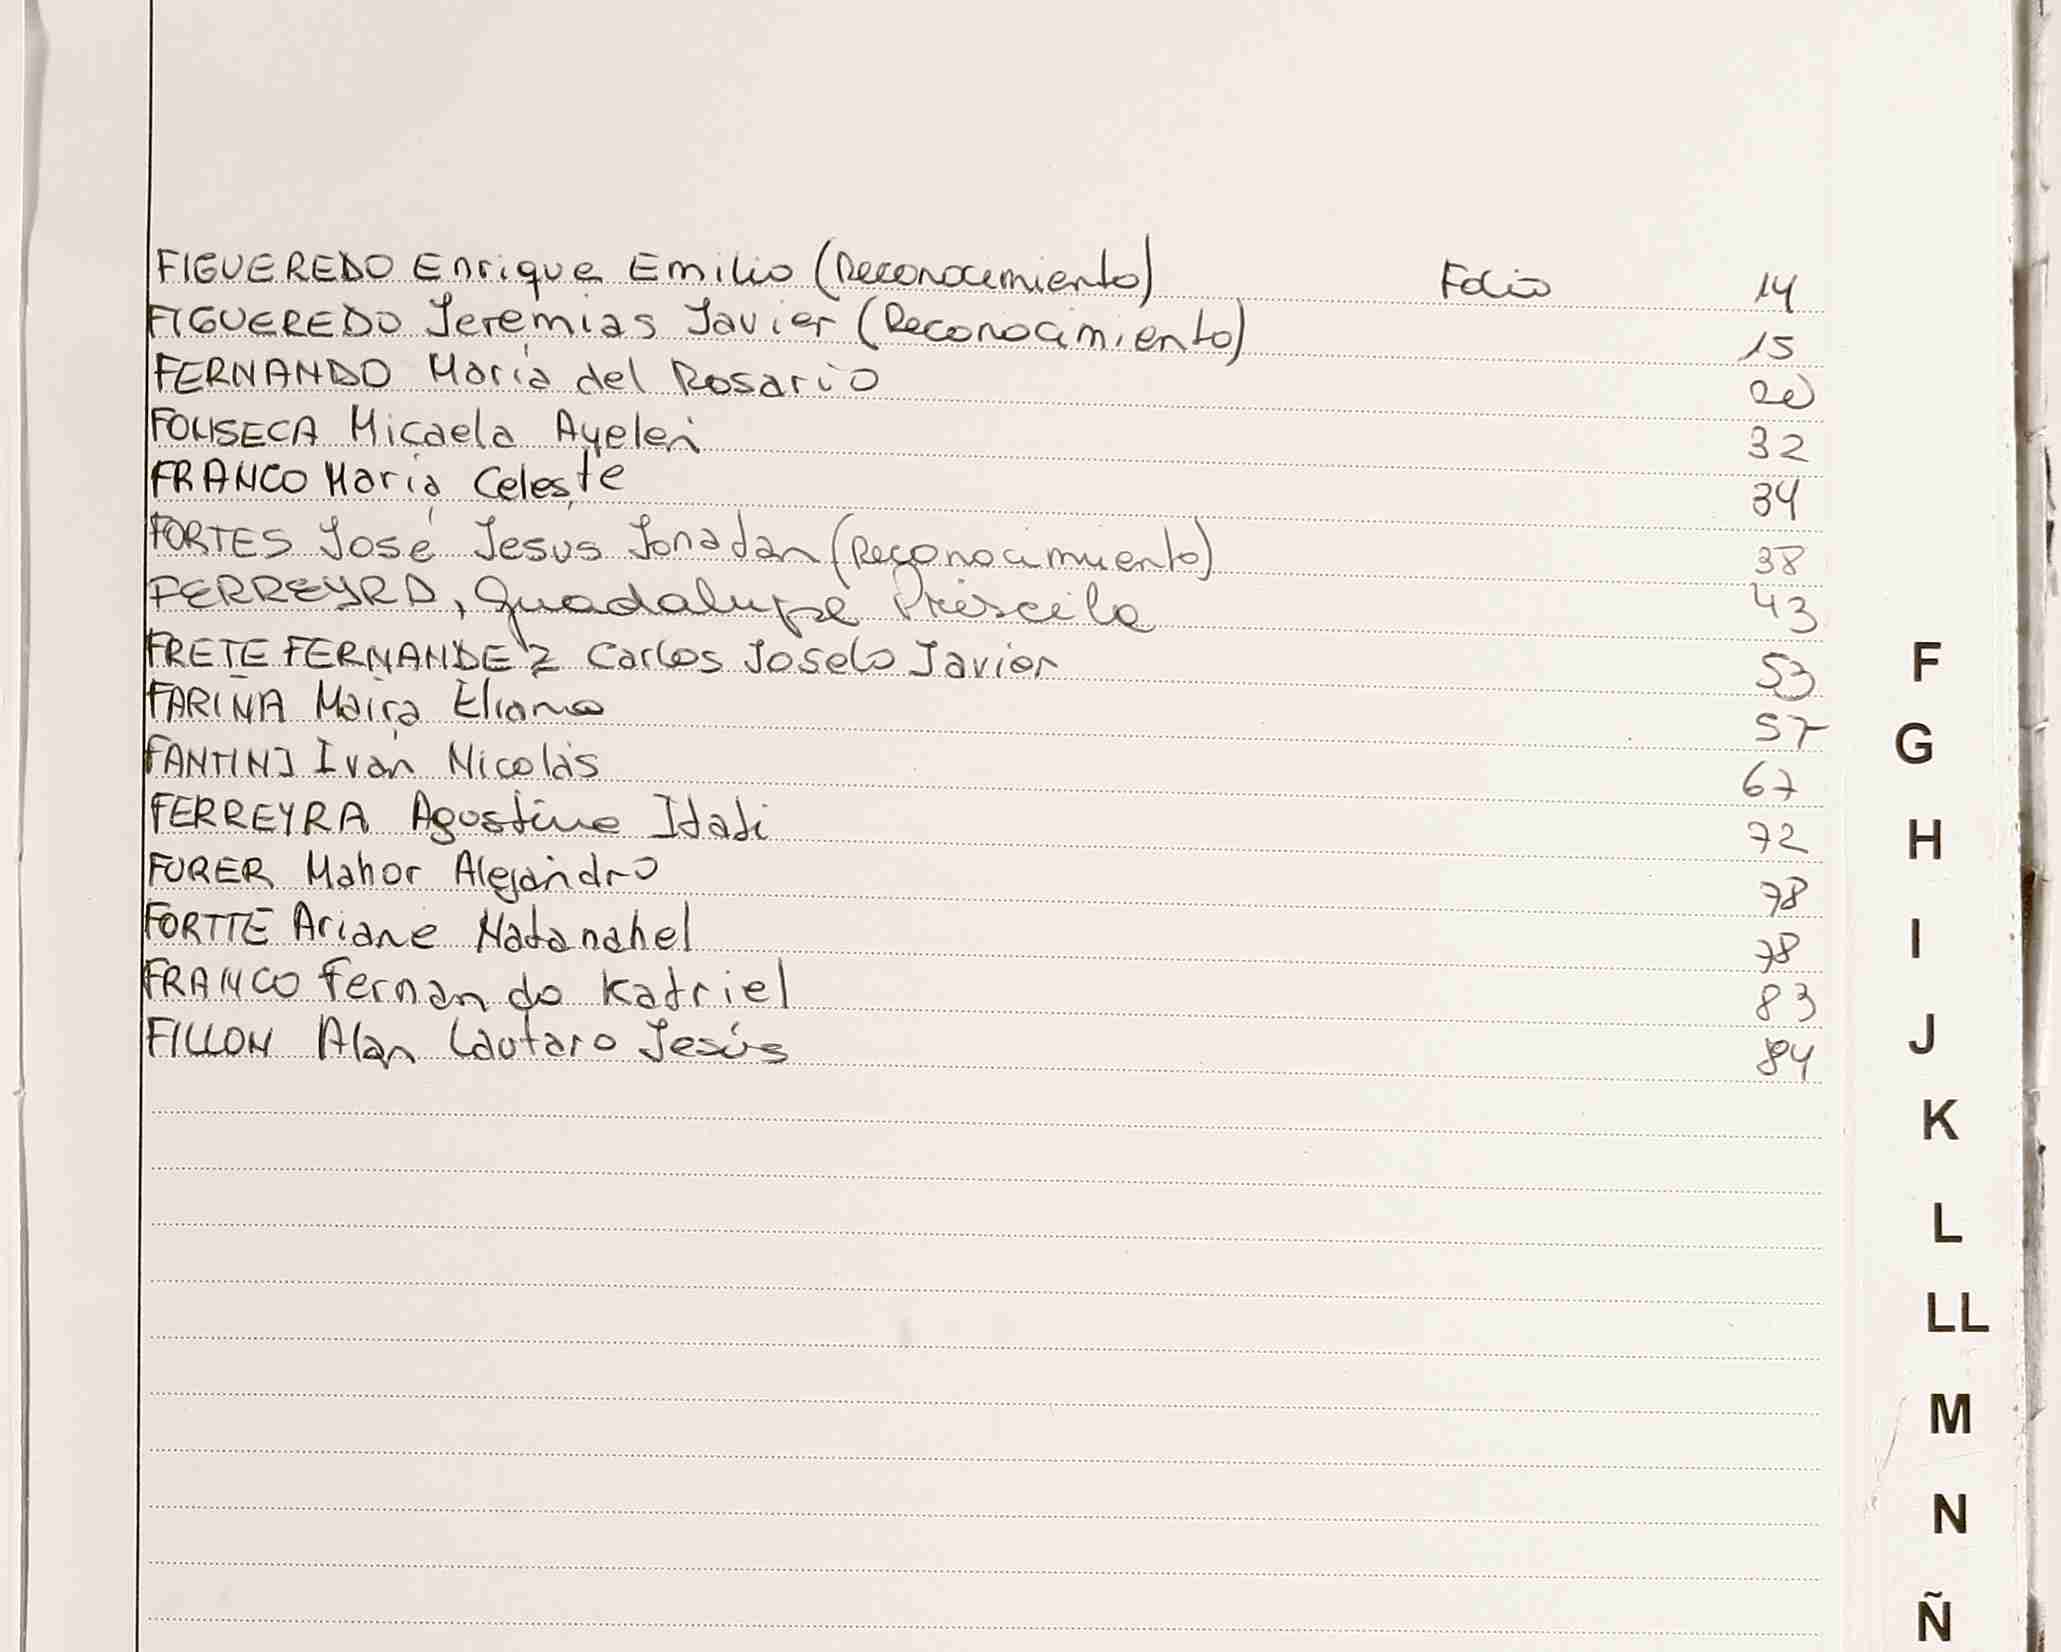 FIGUEREDO Enrique Emilio (Reconocimiento) Folio 14
FIGUEREDO Jeremias Javier (Reconocimiento) 15
FERNANDO María del Rosario 20
FONSECA Micaela Ayelen 32
FRANCO María Celeste 34
FORTES José Jesús Jonatan (Reconocimiento) 38
FERREYRA, Guadalupe Priscila 43
FRETE FERNANDEZ Carlos Joselo Javier 53
FARIÑA Maira Eliana 57
FANTINI Iván Nicolás 67
FERREYRA Agostina Itati 72
FURER Mahor Alejandro 78
FORTTE Ariane Natanahel 78
FRANCO Fernando Katriel 83
FILLON Alan Lautaro Jesús 84
F
G
H
I
J
K
L
LL
M
N
Ñ